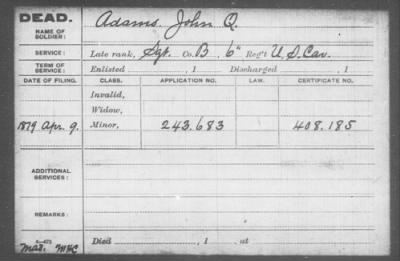 DEAD.
NAME OF SOLDIER: Adams, John Q.
SERVICE: Late rank, Sgt. Co. B, 6" Reg't U. S. Cav.
TERM OF SERVICE: Enlisted , 1 Discharged , 1
DATE OF FILING. CLASS. APPLICATION NO. LAW. CERTIFICATE NO.
Invalid,
Widow,
1879 Apr. 9. Minor, 243.683 408.185
ADDITIONAL SERVICES:
REMARKS:
Died , 1 at